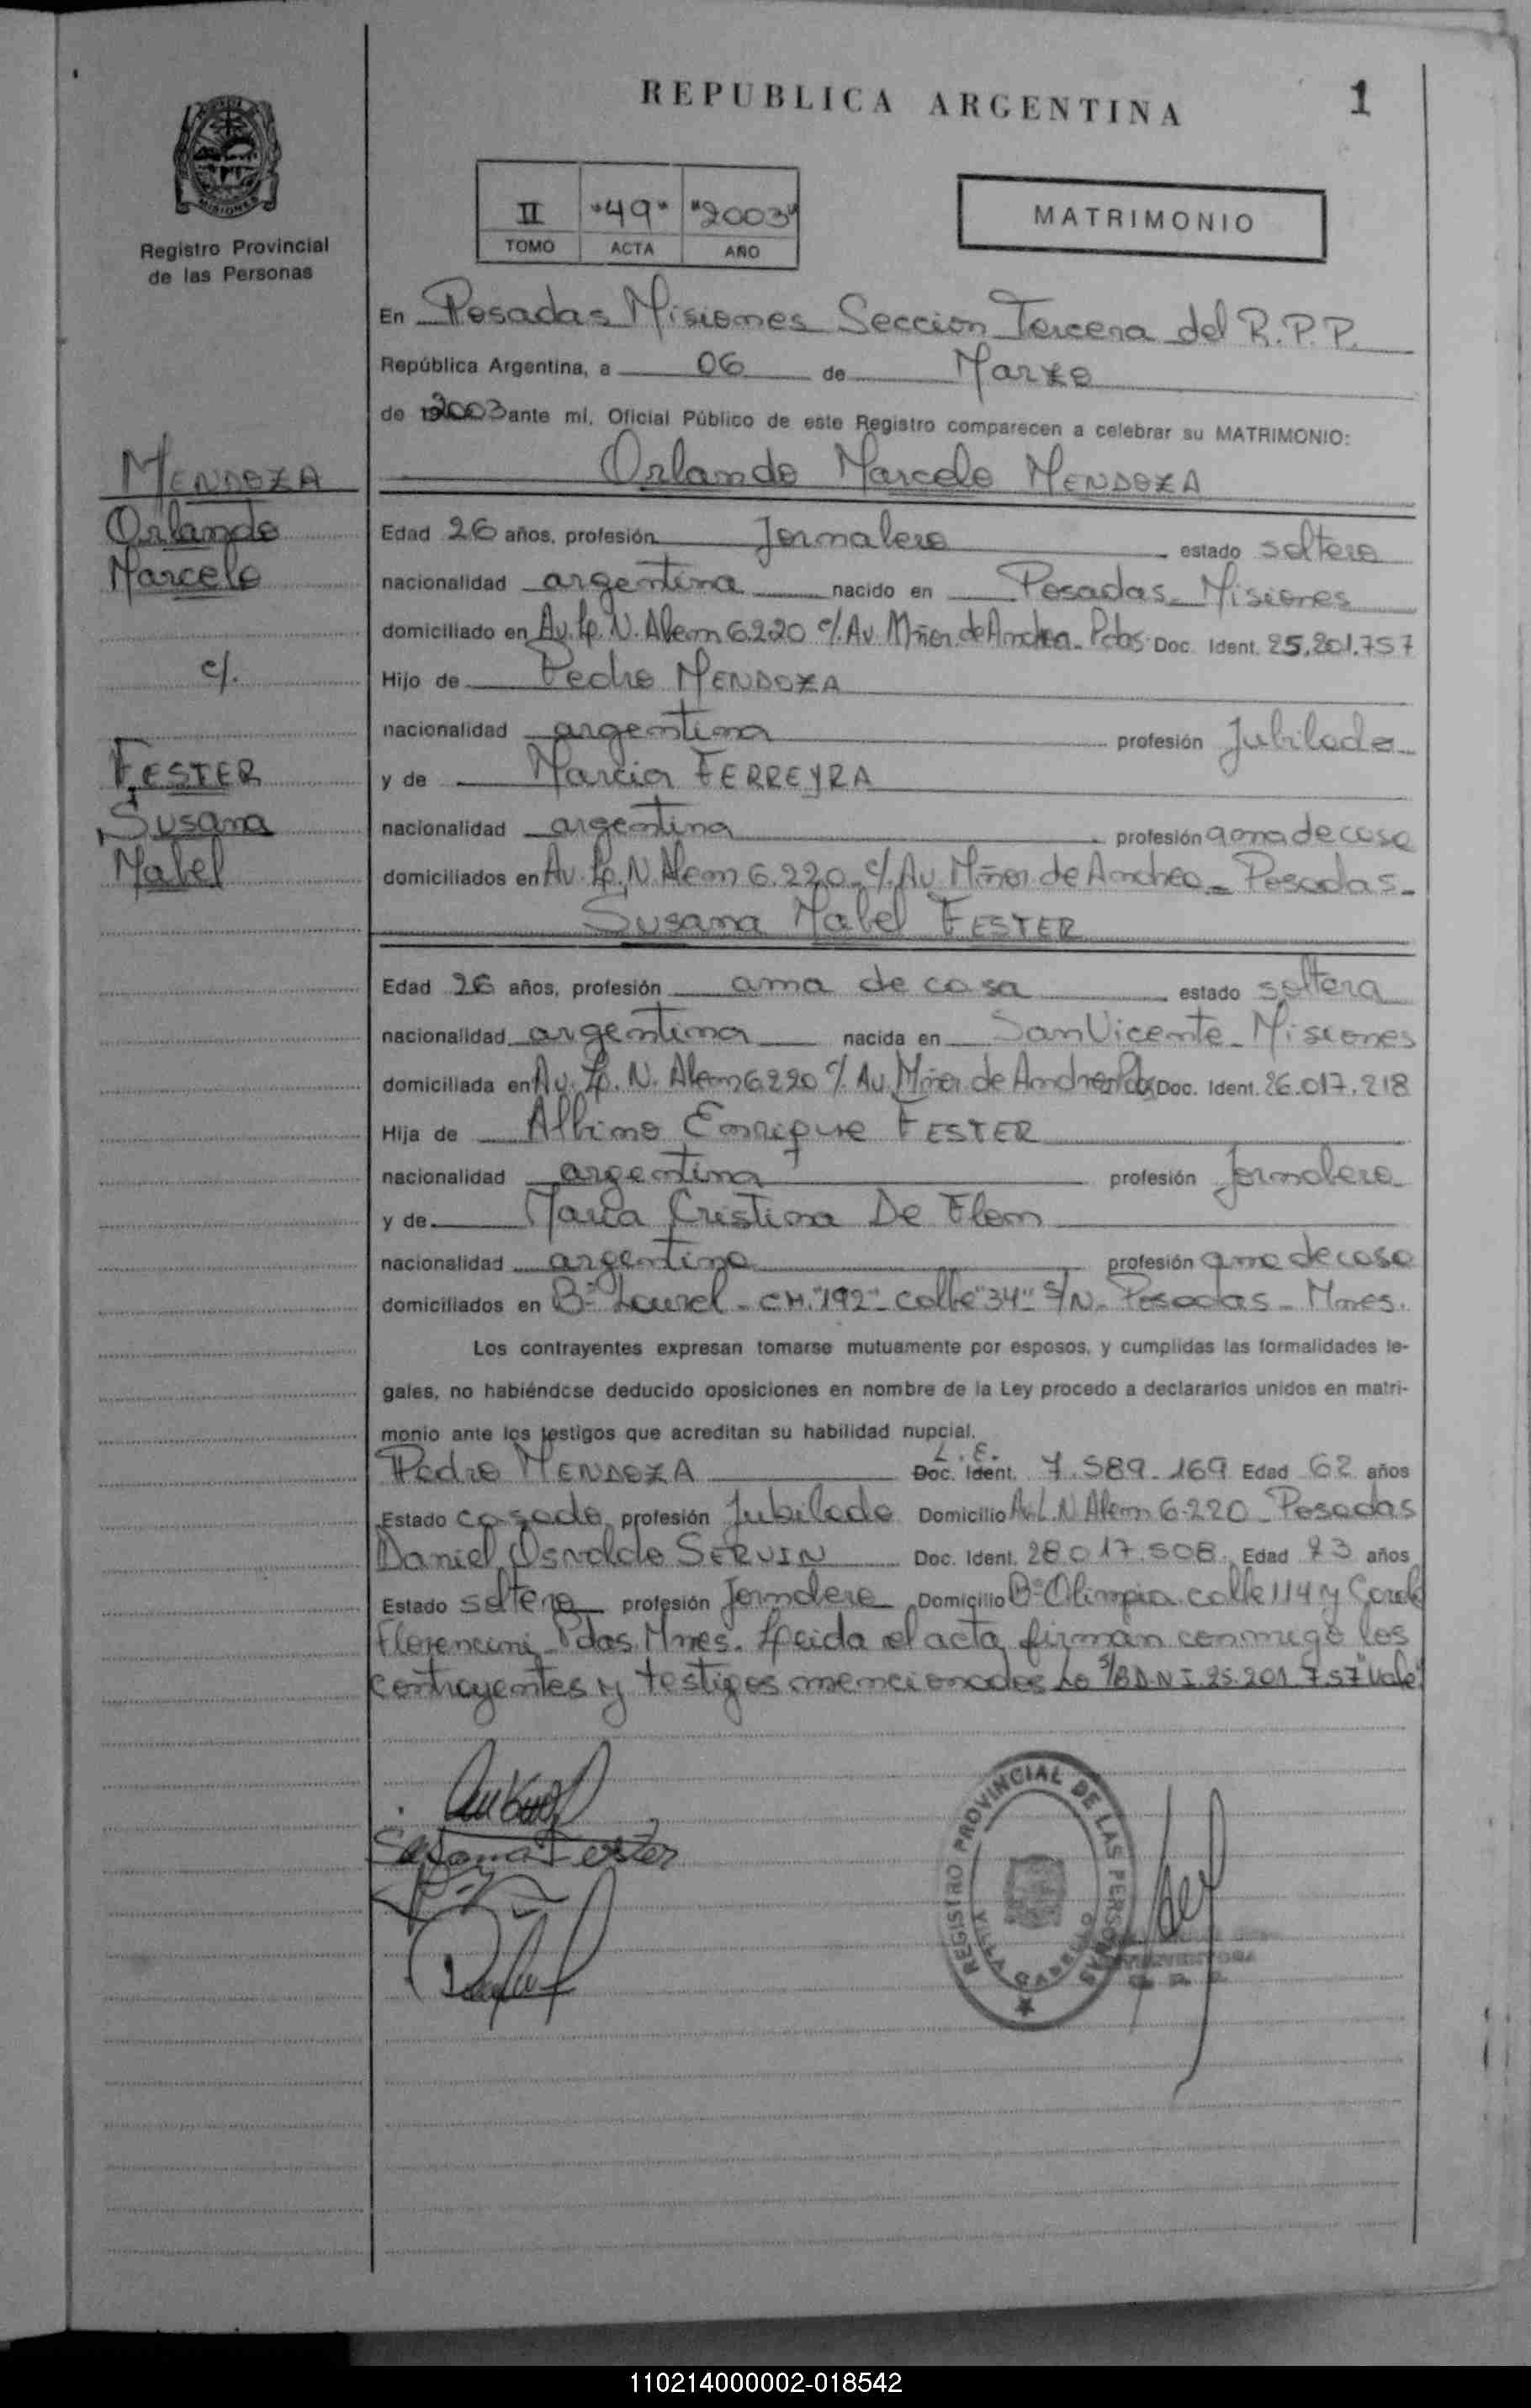 REPUBLICA ARGENTINA
1
MISIONES
Registro Provincial
de las Personas
II "49" "2003"
TOMO ACTA AÑO
MATRIMONIO
En Posadas Misiones Seccion Tercera del R.P.P.
República Argentina, a 06 de Marzo
de 2003 ante mí, Oficial Público de este Registro comparecen a celebrar su MATRIMONIO:
Orlando Marcelo MENDOZA
MENDOZA
Orlando
Marcelo
c/.
FESTER
Susana
Mabel
Edad 26 años, profesión Jornalero estado soltero
nacionalidad argentina nacido en Posadas - Misiones
domiciliado en Av. L. N. Alem 6220 c/. Av. Mñor. de Andrea - Pdas Doc. Ident. 25.201.757
Hijo de Pedro MENDOZA
nacionalidad argentina profesión Jubilado
y de Marcia FERREYRA
nacionalidad argentina profesión ama de casa
domiciliados en Av. L. N. Alem 6.220 - c/. Av. Mñor. de Andrea - Posadas -
Susana Mabel FESTER
Edad 26 años, profesión ama de casa estado soltera
nacionalidad argentina nacida en San Vicente - Misiones
domiciliada en Av. L. N. Alem 6220 c/. Av. Mñor. de Andrea Pdas Doc. Ident. 26.017.218
Hija de Albino Enrique FESTER
nacionalidad argentina profesión Jornalero
y de Maria Cristina De Elem
nacionalidad argentina profesión ama de casa
domiciliados en Bº Laurel - CH. "192" - calle "34" S/N - Posadas - Mnes.
Los contrayentes expresan tomarse mutuamente por esposos, y cumplidas las formalidades le-
gales, no habiéndose deducido oposiciones en nombre de la Ley procedo a declararlos unidos en matri-
monio ante los testigos que acreditan su habilidad nupcial.
L.E.
Pedro MENDOZA Doc. Ident. 7.589.169 Edad 62 años
Estado casado profesión Jubilado Domicilio Av. L. N Alem 6.220 - Posadas
Daniel Osvaldo SERVIN Doc. Ident. 28.017.508 Edad 23 años
Estado soltero profesión Jornalero Domicilio Bº Olimpia calle 114 y
Florencini - Pdas. Mnes. Leida el acta firman conmigo los
contrayentes y testigos mencionados Lo S/B D.N I. 25.201.757 "Vale"
Susana Fester
REGISTRO PROVINCIAL DE LAS PERSONAS
110214000002-018542